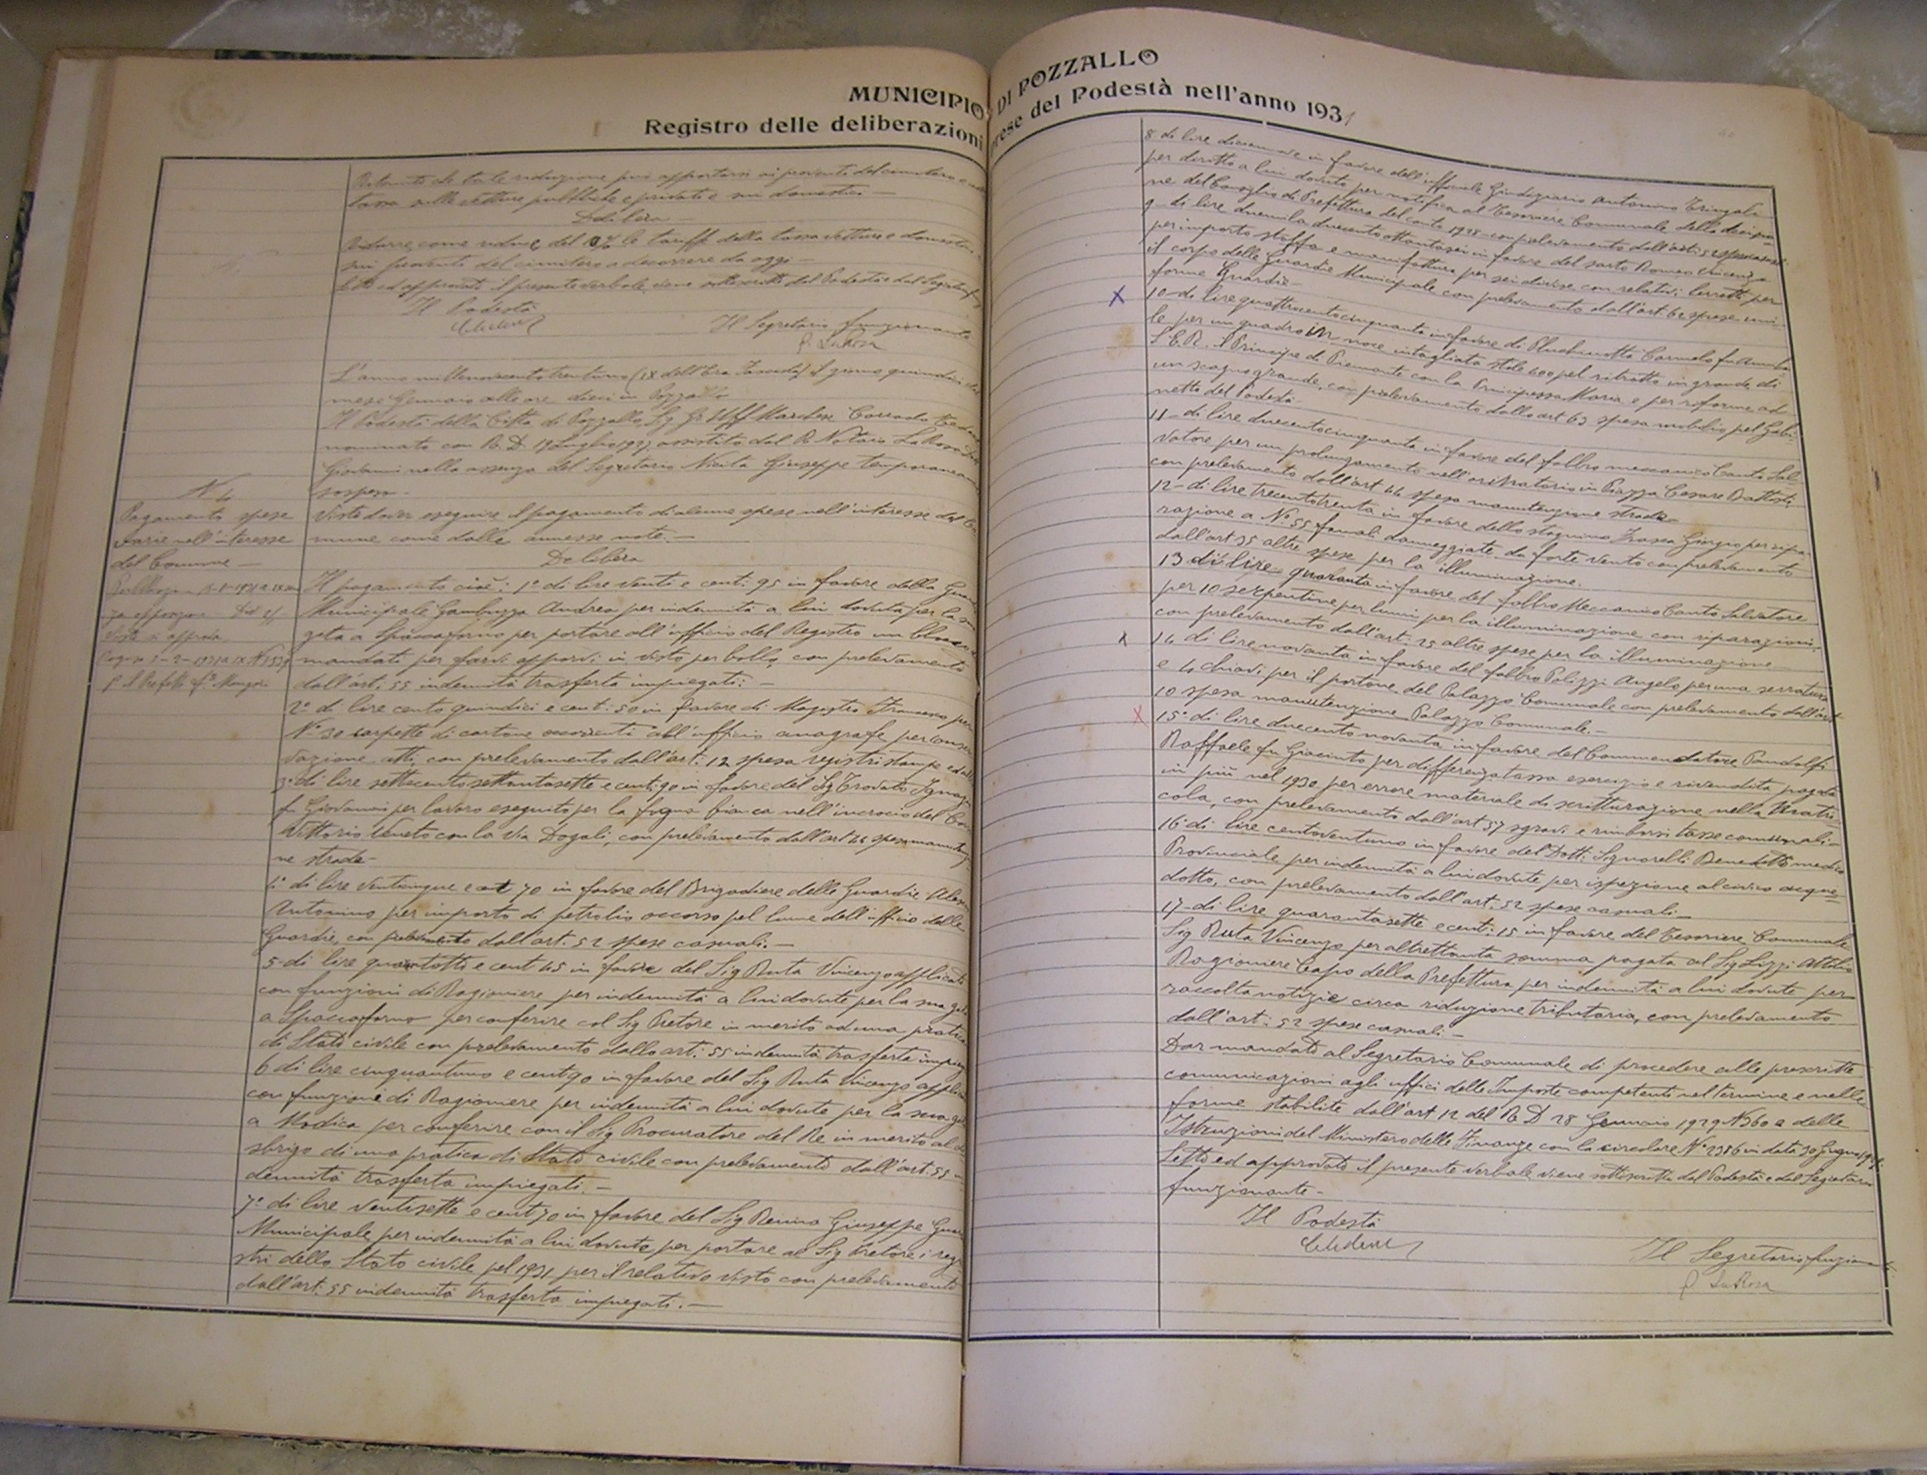 MUNICIPIO DI POZZALLO
Registro delle deliberazioni prese del Podestà nell'anno 1931
Ritenuto che tale riduzione può apportarsi ai proventi del cimitero e
tassa sulle vetture pubbliche e private e sui domestici —
Delibera —
Ridurre, come riduce del 10% le tariffe della tassa vetture e domestici e
sui proventi del cimitero a decorrere da oggi —
Letto ed approvato il presente verbale viene sottoscritto dal Podestà e dal Segretario
Il Podestà
Il Segretario funzionante
G. La Rosa
L'anno millenovecentotrentuno (IX dell'Era Fascista) il giorno quindici del
mese Gennaro alle ore dieci in Pozzallo
Il Podestà della Città di Pozzallo Sig. Gr. Uff. Marchese Corrado
nominato con R. D. 17 Luglio 1927 assistito dal R. Notaio La Rosa
Giovanni nella assenza del Segretario Nicita Giuseppe temporaneamente
sospeso —
N. 4
Pagamento spese
varie nell'interesse
del Comune —
Visto dover eseguire il pagamento di alcune spese nell'interesse del Co-
mune come dalle annesse note. —
Delibera
Il pagamento cioè: 1° di lire venti e cent: 95 in favore della Guardia
Municipale Gambuzza Andrea per indennità a lui dovuta per la sua
gita a Spaccaforno per portare all'ufficio del Registro un blocco
mandati per farvi apporvi il visto per bollo con prelevamento
dall'art: 55 indennità trasferta impiegati: —
2° di lire cento quindici e cent: 50 in favore di Magistro Francesco per
N° 30 carpette di cartone occorrenti all'ufficio anagrafe per conser-
vazione atti, con prelevamento dall'art: 12 spesa registri stampe ed
3° di lire settecento settantasette e cent: 90 in favore del Sig Trovato Ignazio
fu Giovanni per lavoro eseguito per la fogna bianca nell'incrocio del Corso
Vittorio Veneto con la via Dogali, con prelevamento dall'art 44 spesa manutenzio-
ne strade —
4° di lire venticinque e cent 70 in favore del Brigadiere delle Guardie
Antonino per importo di petrolio occorso pel lume dell'ufficio delle
Guardie, con prelevamento dall'art. 52 spese casuali. —
5 — di lire quarantotto e cent 45 in favore del Sig Ruta Vincenzo applicato
con funzioni di Ragioniere per indennità a lui dovute per la sua gita
a Spaccaforno per conferire col Sig Pretore in merito ad una pratica
di Stato civile con prelevamento dallo art: 55 indennità trasferte impiegati
6 di lire cinquantuno e cent 90 in favore del Sig Ruta Vincenzo applicato
con funzione di Ragioniere per indennità a lui dovute per la sua gita
a Modica per conferire con il Sig Procuratore del Re in merito al di-
sbrigo di una pratica di Stato civile con prelevamento dall'art: 55 in-
dennità trasferta impiegati. —
7° di lire ventisette e cent 70 in favore del Sig Giuseppe Guardia
Municipale per indennità a lui dovute per portare al Sig Pretore i regi-
stri dello Stato civile pel 1931 per il relativo visto con prelevamento
dall'art: 55 indennità trasferta impiegati. —
8 di lire diciannove in favore dell'ufficiale Giudiziario Antonino Tringali
per diritto a lui dovuto per notifica al Tesoriere Comunale della decisio-
ne del Consiglio di Prefettura del conto 1928 — con prelevamento dall'art: 52 spese casuali
9 — di lire duemila duecentottantasei in favore del sarto Romeo Vincenzo
per importo stoffa e manifattura per sei divise con relativi berretti per
il corpo delle Guardie Municipale con prelevamento dall'art: 62 spese uni-
forme Guardie —
X 10 — di lire quattrocentocinquanta in favore di Carmelo fu
le per un quadro in noce intagliato stile 600 pel ritratto in grande di
S. E. R. il Principe di Piemonte con la Principessa Maria e per riforme ad
un scagno grande, con prelevamento dallo art 63 spesa mobilio pel Gabi-
netto del Podestà —
11 — di lire duecentocinquanta in favore del fabbro meccanico Cantó Sal-
vatore per un prolungamento nell'orinatoio in Piazza Cesare Battisti
con prelevamento dall'art 44 spesa manutenzione strade —
12 — di lire trecentotrenta in favore dello stagnino Frasca Giorgio per ripa-
razione a N° 55 fanali danneggiate da forte vento con prelevamento
dall'art 35 altre spese per la illuminazione.
13 di lire quaranta in favore del fabbro Meccanico Cantó Salvatore
per 10 serpentine per lumi per la illuminazione con riparazioni,
con prelevamento dall'art: 35 altre spese per la illuminazione —
X 14 di lire novanta in favore del fabbro Polizzi Angelo per una serratura
e 4 chiavi per il portone del Palazzo Comunale con prelevamento dall'art
10 spesa manutenzione Palazzo Comunale. —
X 15° di lire duecento novanta in favore del Commendatore Pandolfi
Raffaele fu Giacinto per differenza tassa esercizio e rivendita pagata
in più nel 1930 per errore materiale di scritturazione nella Matri-
cola, con prelevamento dall'art 57 sgravi e rimborsi tasse comunali —
16 di lire centoventuno in favore del Dott: Signorelli Benedetto medico
Provinciale per indennità a lui dovute per ispezione al civico acque-
dotto, con prelevamento dall'art: 52 spese casuali —
17 — di lire quarantasette e cent: 15 in favore del Tesoriere Comunale
Sig Ruta Vincenzo per altrettanta somma pagata al Sig Lizzi Attilio
Ragioniere Capo della Prefettura per indennità a lui dovute per
raccolta notizie circa riduzione tributaria, con prelevamento
dall'art: 52 spese casuali. —
Dar mandato al Segretario Comunale di procedere alle prescritte
comunicazioni agli uffici delle Imposte competenti nel termine e nelle
forme stabilite dall'art 12 del R. D 28 Gennaio 1929 N 360 e delle
Istruzioni del Ministero delle Finanze con la circolare N° 2386 in data 30 Giugno
Letto ed approvato il presente verbale viene sottoscritto dal Podestà e dal Segretario
funzionante —
Il Podestà
Il Segretario funzionante
G. La Rosa